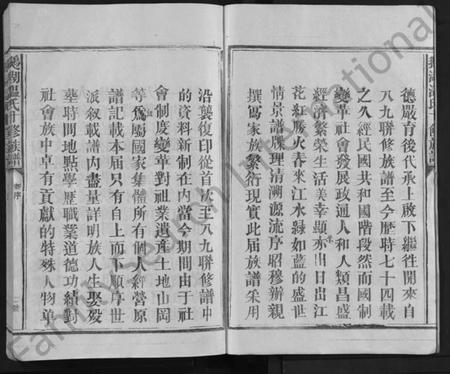 德嚴育後代承上啟下繼往開來自
八九聯修族譜至今歷時七十四載
之久經民國共和國階段然而國制
變革社會發展政通人和人類昌盛
經濟繁榮生活美幸顯亦日出日江
花紅勝火春來江水綠如藍的盛世
情景譜牒理清溯源流序昭穆辦親
撰寫家族繁衍現實此届族譜采用
沿襲復印從首族至八九聯修譜中
的資料新制在內當今期間由于社
會制度變革對祖業遺產土地山岡
等為屬國家集體所有個人經營原
譜記載本届只有自上而下順序世
派叙載譜內盡量詳明族人生娶殁
塟時間地點學歷職業道德功績對
社會族中卓有貢獻的特殊人物单
鵝湖溫氏十修族譜
卷序
Family Region International